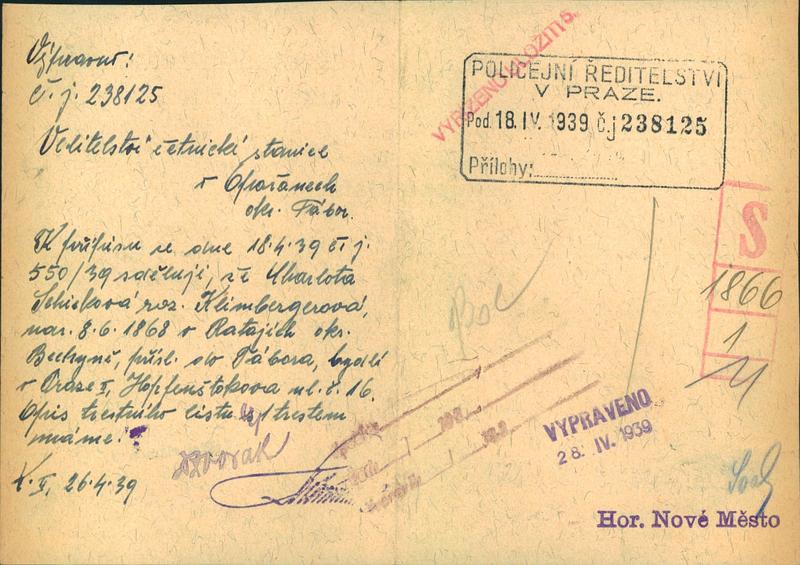 Výpravně:
č. j. 238125
Velitelství četnické stanice
v Opařanech
okr. Tábor.
K přípisu ze dne 18.4.39 č. j.
550/39 sděluji, že Charlota
Schicková roz. Klimbergerová,
nar. 8.6.1868 v Ratajích okr.
Bechyně, přísl. do Tábora, bydlí
v Praze II, Hopfenštokova ul. č. 16.
Opis trestního listu s trestem
máme.
Dvorak
K. II, 26.4.39
VYŘÍZENO ULOŽITI S.
POLICEJNÍ ŘEDITELSTVÍ
V PRAZE.
Pod. 18. IV. 1939 č.j 238125
Přílohy:
S
1866
1
193
193
VYPRAVENO
28. IV. 1939
Hor. Nové Město